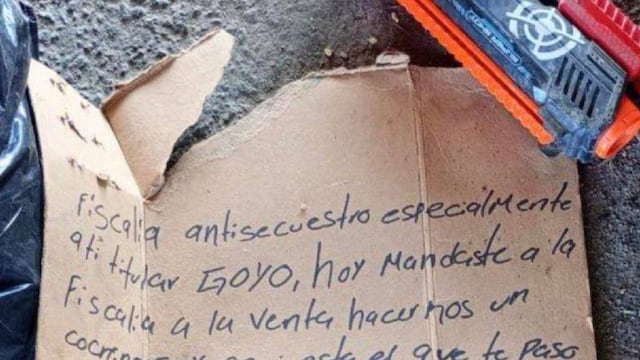 Fiscalia antisecuestro especialmente
ati titular GOYO, hoy Mandaste a la
Fiscalia a la venta hacernos un
el que te pasa